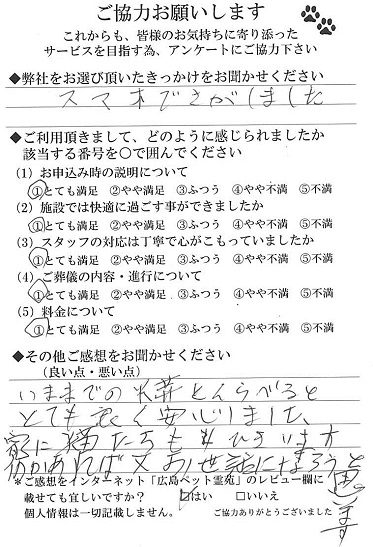 ご協力お願いします
これからも、皆様のお気持ちに寄り添った
サービスを目指す為、アンケートにご協力下さい
◆弊社をお選び頂いたきっかけをお聞かせください
スマホでさがしました
◆ご利用頂きまして、どのように感じられましたか
該当する番号を〇で囲んでください
(1) お申込み時の説明について
①とても満足 ②やや満足 ③ふつう ④やや不満 ⑤不満
(2) 施設では快適に過ごす事ができましたか
①とても満足 ②やや満足 ③ふつう ④やや不満 ⑤不満
(3) スタッフの対応は丁寧で心がこもっていましたか
①とても満足 ②やや満足 ③ふつう ④やや不満 ⑤不満
(4) ご葬儀の内容・進行について
①とても満足 ②やや満足 ③ふつう ④やや不満 ⑤不満
(5) 料金について
①とても満足 ②やや満足 ③ふつう ④やや不満 ⑤不満
◆その他ご感想をお聞かせください
(良い点・悪い点)
いままでの火葬とくらべると
とても良く安心しました、
家に猫たちも ひきいます
何かあれば又お世話になろうと
思います
*ご感想をインターネット「広島ペット霊苑」のレビュー欄に
載せても宜しいですか? □はい □いいえ
個人情報は一切記載しません。 ご協力ありがとうございました